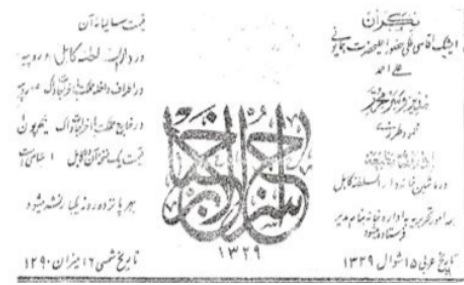 نگران
ایشیک آقاسی ملکی حضور اعلیحضرت همایونی
علی احمد
مدیر و سر محرر
محمود طرزی
اداره خانه
در ماشین خانه دار السلطنه کابل
هر امور تحریریه به اداره خانه بنام مدیر
فرستاده میشود
تاریخ عربی ۱۵ شوال ۱۳۲۹
سراج الاخبار
۱۳۲۹
قیمت سالیانه آن
در دار السلطنه کابل روپیه
در اطراف داخله مملکت با اجرت ڈاک روپیه
در خارج مملکت با اجرت ڈاک نیم پون
قیمت یک نسخه آن در کابل ۱ عباسی است
بهر پانزده روز یکبار نشر میشود
تاریخ شمسی ۱۶ میزان ۱۲۹۰